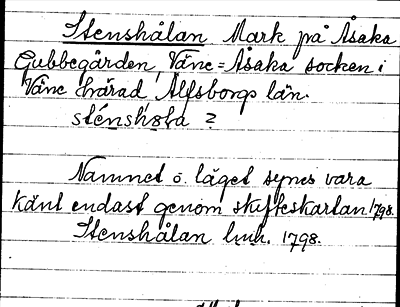 Stenshålan Mark på Åsaka
Gubbegården, Väne-Åsaka socken i
Väne härad Älfsborgs län.
sténshøla ?
Namnet o. läget synes vara
känt endast genom skifteskartan 1798.
Stenshålan lmh. 1798.